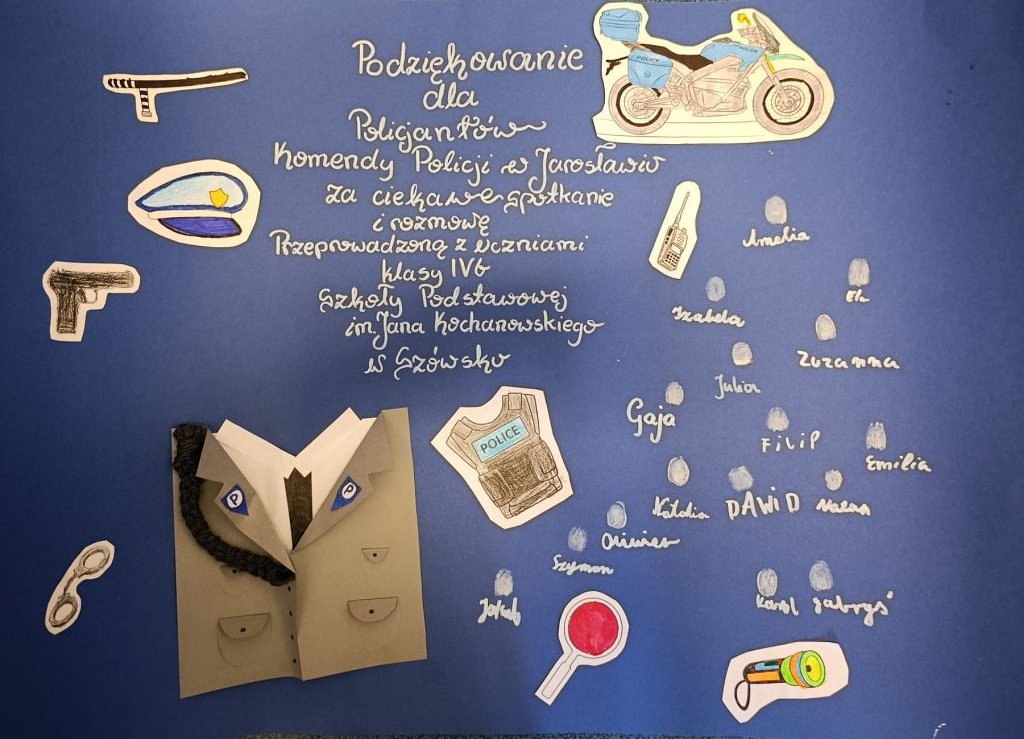 Podziękowanie
dla
Policjantów
Komendy Policji w Jarosławiu
za ciekawe spotkanie
i rozmowę
Przeprowadzoną z uczniami
klasy IVb
Szkoły Podstawowej
im. Jana Kochanowskiego
w Szówsku
POLICE
Amelia
Izabela
Zuzanna
Julia
Gaja
FiliP
Emilia
Natalia
DAWiD
POLICE
P
P
Oliwier
Szymon
Jakub
Karol
Gabryś